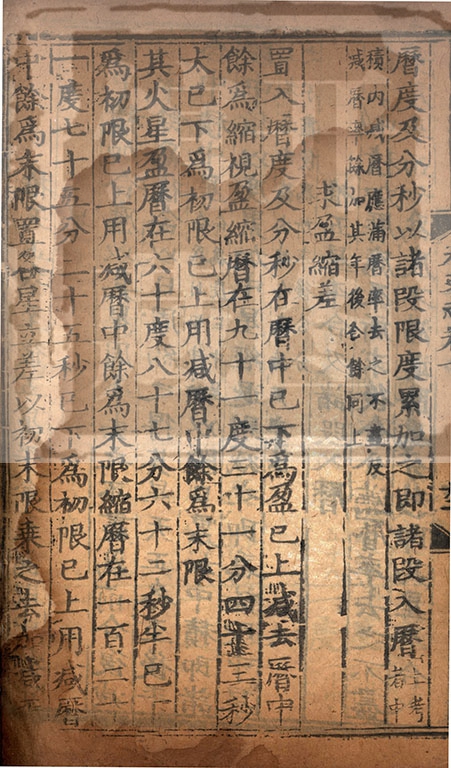 曆度及分秒以諸段限度累加之即諸段入曆上考者中
積內減曆應滿曆率去之不盡反
減曆率餘加其年後合餘同上
求盈縮差
置入曆度及分秒在曆中已下為盈已上減去曆中
餘為縮視盈縮曆在九十一度三十一分四十三秒
太已下為初限已上用減曆中餘為末限
其火星盈曆在六十度八十七分六十二秒半已下
為初限已上用減曆中餘為末限縮曆在一百二十
一度七十五分二十五秒已下為初限已上用減曆
中餘為末限置各星立差以初末限乘之去加減平